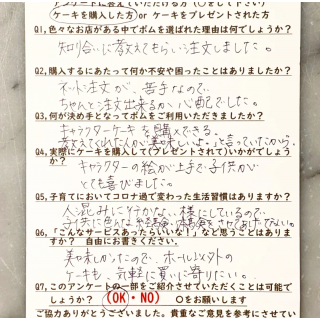 アンケートに答えていただける方（〇をして下さい）
ケーキを購入した方 or ケーキをプレゼントされた方
Q1,色々なお店がある中でボムを選ばれた理由は何でしょうか？
知り合いに教えてもらい注文しました。
Q2,購入するにあたって何か不安や困ったことはありましたか？
ネット注文が、苦手なので
ちゃんと注文出来るか心配でした。
Q3,何が決め手となってボムをご利用いただきましたか？
キャラクターケーキを購入できる。
教えてくれた人が「美味しいよ。」と言っていたから。
Q4,実際にケーキを購入して(プレゼントされて)いかがでしょうか？
キャラクターの絵が上手で子供が
とても喜びました。
Q5,子育てにおいてコロナ過で変わった生活習慣はありますか？
人混みに行かない様にしているので、
子供に色んな
Q6,「こんなサービスあったらいいな！」など思うことはありますか？ 自由にお書きください。
美味しかったので、ホール以外の
ケーキも、気軽に買いに寄りたい。
Q7,このアンケートの一部をご紹介させていただくことは可能でしょうか？ (OK・NO) 〇をお願いします
ご協力ありがとうございました。貴重なご意見を参考にさせてい